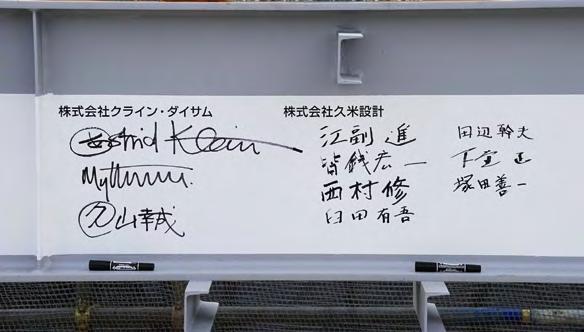 株式会社クライン・ダイサム
Astrid Klein
久山幸成
株式会社久米設計
江副 進
皆銭宏一
西村 修
臼田有吾
田辺幹夫
塚田善一